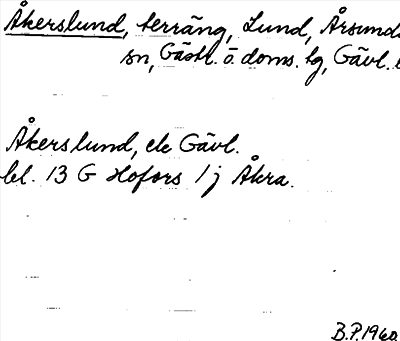 Åkerslund, terräng, Lund, Årsunda
sn, Gästr. ö. doms. tg, Gävl. l
Åkerslund, ek Gävl.
bl. 13 G Hofors 1 j Åkra.
B.P. 1960